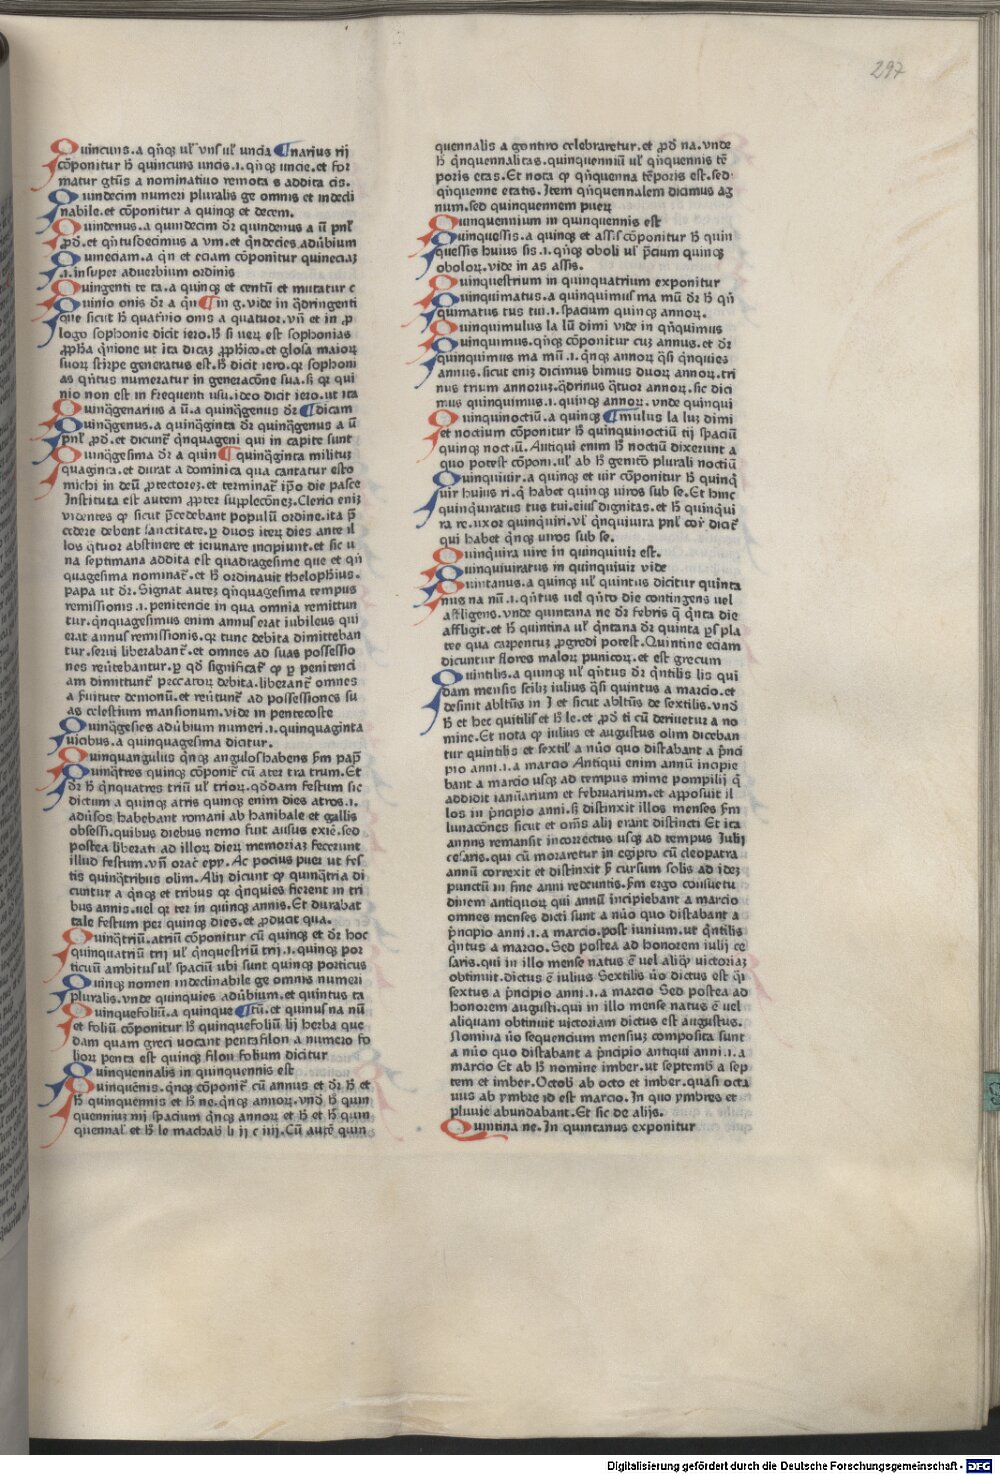 297
Quincuns.a qͥnqꝫ ul' vnſ ul' uncia ¶narius rij
cōponitur ħ quincuns uncis.i.qͥnqꝫ uncie.et for
matur gtūs a nominatiuo remota s addita cis.
Quindecim numeri pluralis ge omnis et indecli
nabile.et cōponitur a quinqꝫ et decem.
Quindenus.a quindecim dꝛ quindenus a ū pnl'
ꝓd̄.et qͥntuſdecimus a vm.et qͥndecies adūbium
Quineciam.a qͥn et eciam cōponitur quineciaꝫ
.i.inſuper aduerbium ordinis
Quingenti te ta.a quinqꝫ et centū et mutatur c
Quinio onis dꝛ a qͥn ¶in g.vide in qͣdringenti
que ſicut ħ quatͥnio onis a quatuor.vn̄ et in ꝓ
logo ſophonie dicit iero.ħ ſi ueꝝ est ſophonias
ꝓpħa qͥnione ut ita dicaꝫ ꝓpħico.et gloſa maioꝝ
ſuoꝝ ſtirpe generatus eſt.ħ dicit iero.qꝛ ſophoni
as qͥntus numeratur in generacōne ſua.ſi qꝛ qui
nio non eſt in frequenti uſu.ideo dicit iero.ut ita
Quinqͣgenarius a ū.a quinqͣgenus dꝛ ¶dicam
Quinqͣgenus.a quinqͣginta dꝛ quinqͣgenus a ū
pnl' ꝓd̄.et dicunt̄ qͥnquageni qui in capite ſunt
Quinqͣgeſima dꝛ a quin ¶quinqͣginta militus
quaginta.et durat a dominica qua cantatur eſto
michi in deū ꝓtectoreꝫ.et terminat̄ ip̄o die paſce
Inſtituta eſt autem ꝓpter ſupplecōneꝫ.Clerici eniꝫ
videntes ꝙ ſicut p̄cedebant populū ordine.ita p̄
cedere debent ſanctitate.ꝑ duos iteꝝ dies ante il
los qͣtuor abſtinere et ieiunare incipiunt.et ſic u
na ſeptimana addita eſt quadrageſime que et qͥn
quageſima nominat̄.et ħ ordinauit thelophius.
papa ut dꝛ.Signat auteꝫ qͥnquageſima tempus
remiſſionis.i.penitencie in qua omnia remittun
tur.qͥnquageſimus enim annuſ erat iubileus qui
erat annuſ remiſſionis.qꝛ tunc debita dimitteban
tur.ſerui liberabant̄.et omnes ad ſuas poſſeſſio
nes reūtebantur.ꝑ qd̄ ſignificat̄ ꝙ ꝑ penitenci
am dimittunt̄ peccatoꝝ debita.liberant̄ omnes
a ſ̄uitute demonū.et reūtunt̄ ad poſſeſſiones ſu
as celeſtium manſionum.vide in pentecoſte
Quinqͣgeſies adūbium numeri.i.quinquaginta
uicibus.a quinquageſima dicitur.
Quinquangulus qͥnqꝫ anguloſ habens ẜm pap̄
Quinqͣtres quinqꝫ cōponit̄ cū ater tra trum.Et
dꝛ ħ qͥnquatres triū ul' trioꝝ.qd̄dam feſtum ſic
dictum a quinqꝫ atris quinqꝫ enim dies atros.i.
adūſos habebant romani ab hanibale et gallis
obſeſſi.quibus diebus nemo fuit auſus exie.ſed
poſtea liberati ad illoꝝ dieꝝ memoriaꝫ fecerunt
illud feſtum.vn̄ orac̄ epp̄.Ac pocius puer ut feſ
tis quinqͣtribus olim.Alij dicunt ꝙ quinqͣtria di
cuntur a qͥnqꝫ et tribus qꝛ qͥnquies fierent in tri
bus annis.uel qꝛ ter in quinqꝫ annis.Et durabat
tale feſtum per quinqꝫ dies.et ꝓducit qua.
Quinqͣtriū.atriū cōponitur cū quinqꝫ et dꝛ hoc
quinquatriū trij ul' qͥnqueſtriū trij.i.quinqꝫ por
ticuū ambituſ ul' ſpaciū ubi ſunt quinqꝫ porticus
Quinqꝫ nomen indeclinabile ge omnis numeri
pluralis.vnde quinquies adūbium.et quintus ta
Quinquefoliū.a quinque ¶tū.et quinuſ na nū
et foliū cōponitur ħ quinquefoliū lij herba que
dam quam greci uocant pentafilon a numero fo
lioꝝ penta eſt quinqꝫ filon folium dicitur
Quinquennalis in quinquennis eſt
Quinquēnis.qͥnqꝫ cōponit̄ cū annus et dꝛ ħ et
ħ quinquennis et ħ ne.qͥnqꝫ annoꝝ.vnd̄ ħ quin
quenniuꝫ nij ſpacium qͥnqꝫ annoꝝ et ħ et ħ quin
quennal' et ħ le machab li ij c iiij.Cū autē quin
quennalis a gontiro celebraretur.et ꝓd̄ na.vnde
ħ qͥnquennalitas.quinquenniū ul' qͥnquennis tē
poris etas.Et nota ꝙ qͥnquenna tēporis eſt.ſed
qͥnquenne etatis.Item qͥnquennalem dicimus ag
num.ſed quinquennem pueꝝ
Quinquennium in quinquennis eſt
Quinqueſſis.a quinqꝫ et aſſiſ cōponitur ħ quin
queſſis huius ſis.i.qͥnqꝫ oboli ul' p̄cium quinqꝫ
oboloꝝ.vide in as aſſis.
Quinqueſtrium in quinquatrium exponitur
Quinquimatus.a quinquimuſ ma mū dꝛ ħ qͥn
quimatus tus tui.i.ſpacium quinqꝫ annoꝝ.
Quinquimulus la lū dimi vide in qͥnquimus
Quinquimus.qͥnqꝫ cōponitur cuꝫ annus.et dꝛ
quinquimus ma mū.i.qͥnqꝫ annoꝝ qͣſi qͥnquies
annus.ſicut eniꝫ dicimus bimus duoꝝ annoꝝ.tri
nus trium annoruꝫ.qͣdrinus qͣtuor annoꝝ.ſic dici
mus quinquimus.i.quinqꝫ annoꝝ.vnde quinqui
Quinquinoctiū.a quinqꝫ ¶mulus la luꝫ dimi
et noctium cōponitur ħ quinquinoctiū tij ſpaciū
quinqꝫ noctiū.Antiqui enim ħ noctiū dixerunt a
quo poteſt cōponi.ul' ab ħ genitō plurali noctiū
Quinquiuir.a quinqꝫ et uir cōponitur ħ quinqͥ
uir huius ri.qͥ habet quinqꝫ uiros ſub ſe.Et hinc
quinquiratus tus tui.eiuſ dignitas.et ħ quinqͥui
ra re.uxor quinquiri.vl' qͥnquiuira pnl' cor̄ dicit̄
qui habet qͥnqꝫ uiros ſub ſe.
Quinqͥuira uire in quinquiuir eſt.
Quinquiuiratus in quinquiuir vide
Quintanus.a quinqꝫ ul' quintus dicitur quinta
nus na nū.i.qͥntus uel qͥnto die contingens uel
affligens.vnde quintana ne dꝛ febris q̄ qͥnta die
affligit.et ħ quintina ul' qͥntana dꝛ quinta ꝑſ pla
tee qua carpentuꝫ ꝓgredi poteſt.Quintine eciam
dicuntur flores maloꝝ punicoꝝ.et eſt grecum
Quintilis.a quinqꝫ ul' qͥntus dꝛ qͥntilis lis qui
dam menſis ſcilꝫ iulius qͣſi quintus a marcio.et
deſinit abltūs in I et ſicut abltūs de ſextilis.vnd̄
ħ et hec quitiliſ et ħ le.et ꝓd̄ ti cū deriuetur a no
mine.Et nota ꝙ iulius et auguſtus olim diceban
tur quintilis et ſextil' a nūo quo diſtabant a p̄nci
pio anni.i.a marcio Antiqui enim annū incipie
bant a marcio uſqꝫ ad tempus nume pompilij qͥ
addidit ianuarium et februarium.et appoſuit il
los in p̄ncipio anni.ſi diſtinxit illos menſes ẜm
lunacōnes ſicut et om̄s alij erant diſtincti Et ita
annus remanſit incorrectus uſqꝫ ad tempus Iulij
ceſaris.qui cū moraretur in egipto cū cleopatra
annū correxit et diſtinxit p̄ curſum ſolis ad ideꝫ
punctū in fine anni redeuntis.ẜm ergo conſuetu
dinem antiquoꝝ qui annū incipiebant a marcio
omnes menſes dicti ſunt a nūo quo diſtabant a
p̄ncipio anni.i.a marcio.poſt iunium.ut qͥntilis
qͥntus a marcio.Sed poſtea ad honorem iulij ce
ſaris.qui in illo menſe natus ē uel aliqͣꝫ victoriaꝫ
obtinuit.dictus ē iulius Sextilis ūo dictus eſt qͣſi
ſextus a p̄ncipio anni.i.a marcio Sed poſtea ad
honorem auguſti.qui in illo menſe natus ē uel
aliquam obtinuit victoriam dictus eſt auguſtus.
Nomina ūo ſequencium menſiuꝫ compoſita ſunt
a nūo quo diſtabant a p̄ncipio antiqui anni.i.a
marcio Et ab ħ nomine imber.ut ſeptemb̄ a ſep
tem et imber.Octob̄ ab octo et imber.quaſi octa
uus ab ymbre id eſt marcio.In quo ymbres et
pluuie abundabant.Et ſic de alijs.
Quintina ne.In quintanus exponitur
Digitalisierung gefördert durch die Deutsche Forschungsgemeinschaft - DFG